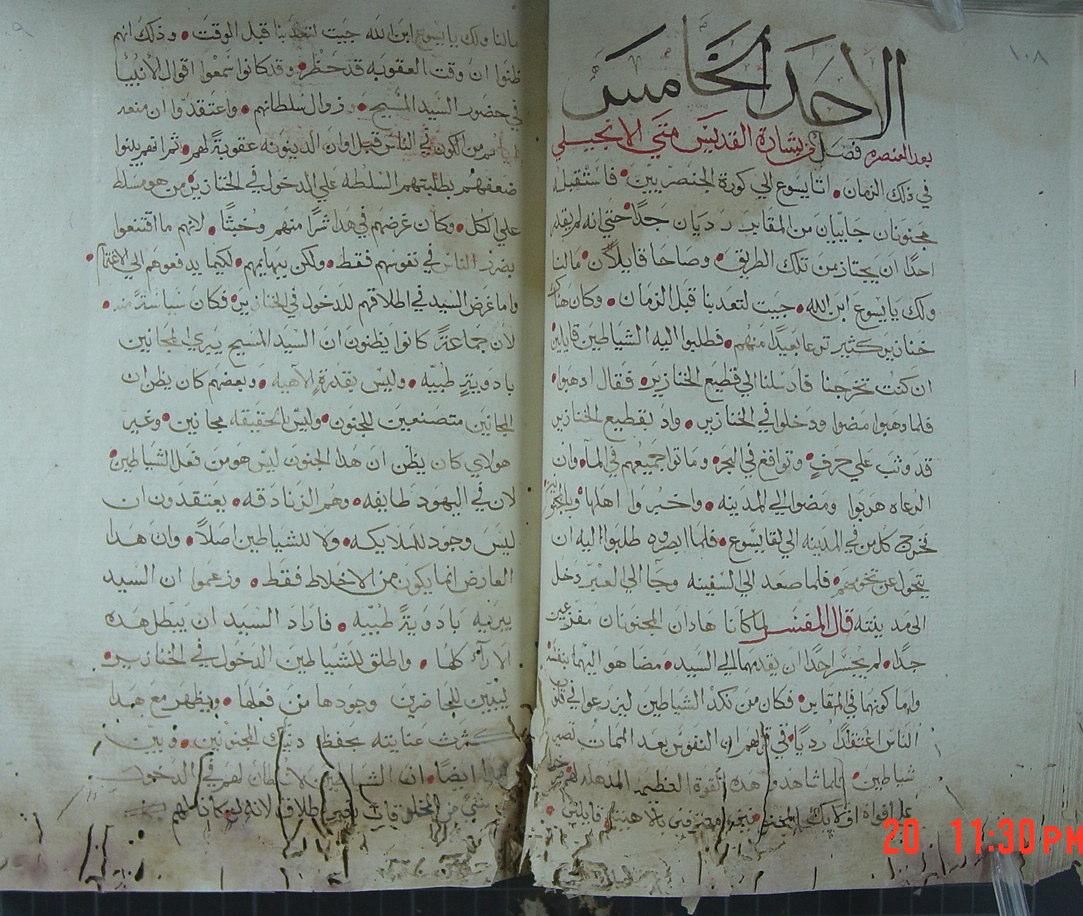 ١٠٨
الاحد الخامس
بعد العنصره فصل من بشارة القديس متي الانجيلي
في ذلك الزمان • اتا يسوع الي كورة الجنصريين • فاستقبله
مجنونان جاييان من المقابر رديان جدا • حتي انه لم يقدر
احدا ان يجتاز من تلك الطريق • وصاحا قايلان • مالنا
ولك يا يسوع ابن الله • جيت لتعدبنا قبل الزمان • وكان هناك
خنازير كثير ترعا بعيدا منهم • فطلبوا اليه الشياطين قايلين
ان كنت تخرجنا فارسلنا الي قطيع الخنازير • فقال ادهبوا •
فلما دهبوا مضوا ودخلوا في الخنازير • وادا بقطيع الخنازير
قد وثب علي جرف • وتواقع في البحر • وماتوا جميعهم في الما • وان
الرعاه هربوا ومضوا الي المدينه • واخبروا اهلها
فخرج كل من في المدينه الي لقا يسوع • فلما ابصروه طلبوا اليه ان
يتحول عن تخومهم • فلما صعد الي السفينه وجا الي العبر دخل
الي مدينته قال المفسر لما كانا هادان المجنونان مفزعين
جدا • لم يجسر احدا ان يقدمهما الي السيد • مضا هو اليهما بنفسه
واما كونهما في المقابر • فكان من نكد الشياطين ليزرعوا في قلوب
الناس اعتقادا رديا • في ان النفوس بعد الممات تصير
شياطين • فلما شاهدوا هده القوة العظيمه المدهله
علي افواه اوليك المجانين قايلين •
مالنا ولك يا يسوع ابن الله جيت لتعدبنا قبل الوقت • ودلك انهم
ظنوا ان وقت العقوبه قد حضر • وقد كانوا سمعوا اقوال الانبيا
في حضور السيد المسيح • وزوال سلطانهم • واعتقدوا ان منعه
من الكون في الناس قبل اوان الدينونه عقوبة لهم • ثم انهم بينوا
ضعفهم بطلبتهم السلطه علي الدخول في الخنازير من هو مسلط
علي الكل • وكان غرضهم في هدا شرا منهم وخبثا • لانهم ما اقتنعوا
بضرر الناس في نفوسهم فقط • ولكن ببهايمهم • لكيما يدفعوهم الي الاغتمام •
واما غرض السيد في اطلاقهم للدخول في الخنازير • فكان سياسة منه •
لان جماعة كانوا يظنون ان السيد المسيح يبري المجانين
بادوية طبيه • وليس بقدرة الاهيه • وبعضهم كان يظن ان
المجانين متصنعين للجنون • وليس بالحقيقه مجانين • وغير
هولاي كان يظن ان هدا الجنون ليس هو من فعل الشياطين •
لان في اليهود طايفه • وهم الزنادقه • يعتقدون ان
ليس وجود للملايكه • ولا للشياطين اصلا • وان هدا
العارض انما يكون من الاخلاط فقط • وزعموا ان السيد
يبريه بادوية طبيه • فاراد السيد ان يبطل هده
الارا كلها • واطلق للشياطين الدخول في الخنازير •
ليبين للحاضرين وجودها من فعلها • ويظهر مع هدا
كثرت عنايته بحفظ دنيك المجنونين • وبين
ايضا • ان الشياطين لا سلطان لهم في الدخول
شي من الخلق اطلاق لانه لو كان لهم